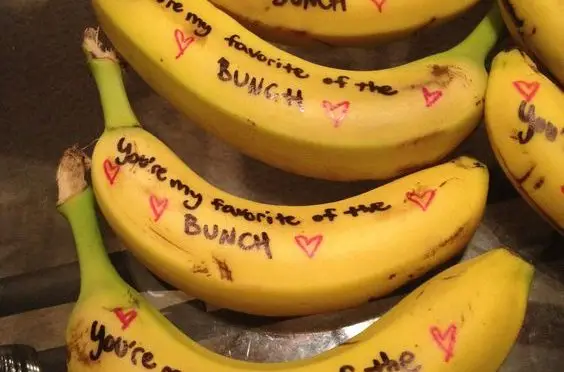 BUNCH
're my favorite of the
BUNCH
You're my favorite of the
BUNCH
You'
You're my
of the